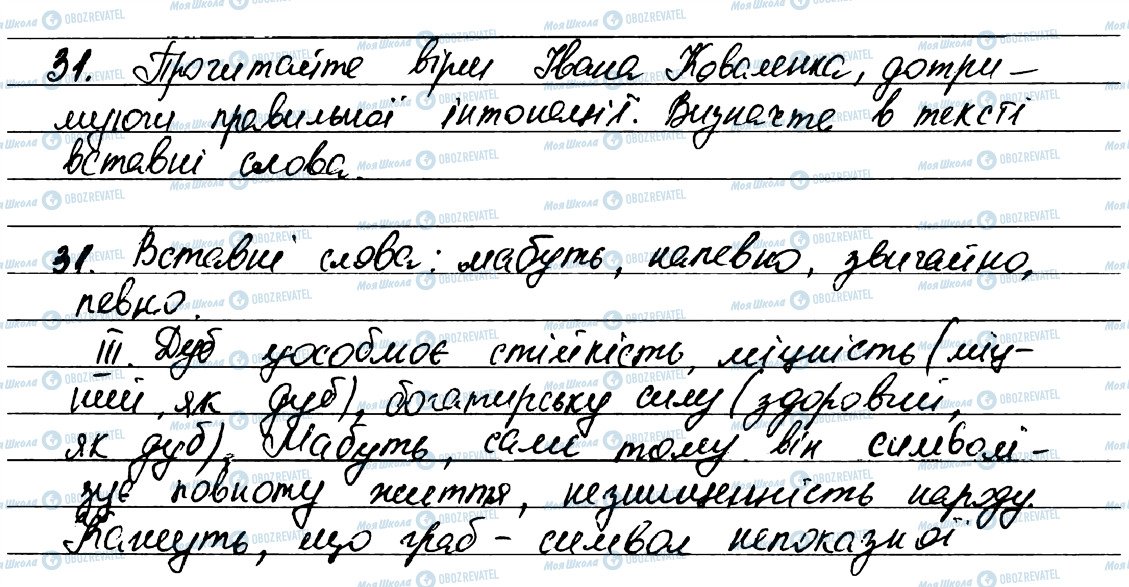 31. Прочитайте вірш Івана Коваленка, дотри-
муючи правильної інтонації. Визначте в тексті
вставні слова.
31. Вставні слова: мабуть, напевно, звичайно,
певно.
III. Дуб уособлює стійкість, міцність (міц-
ний, як дуб), богатирську силу (здоровий,
як дуб). Мабуть, саме тому він символі-
зує повноту життя, незнищенність народу.
Кажуть, що граб - символ непоказної